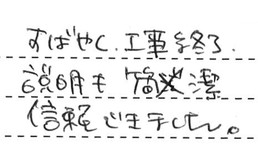 すばやく、工事終了。
説明も 簡潔
信頼できました。